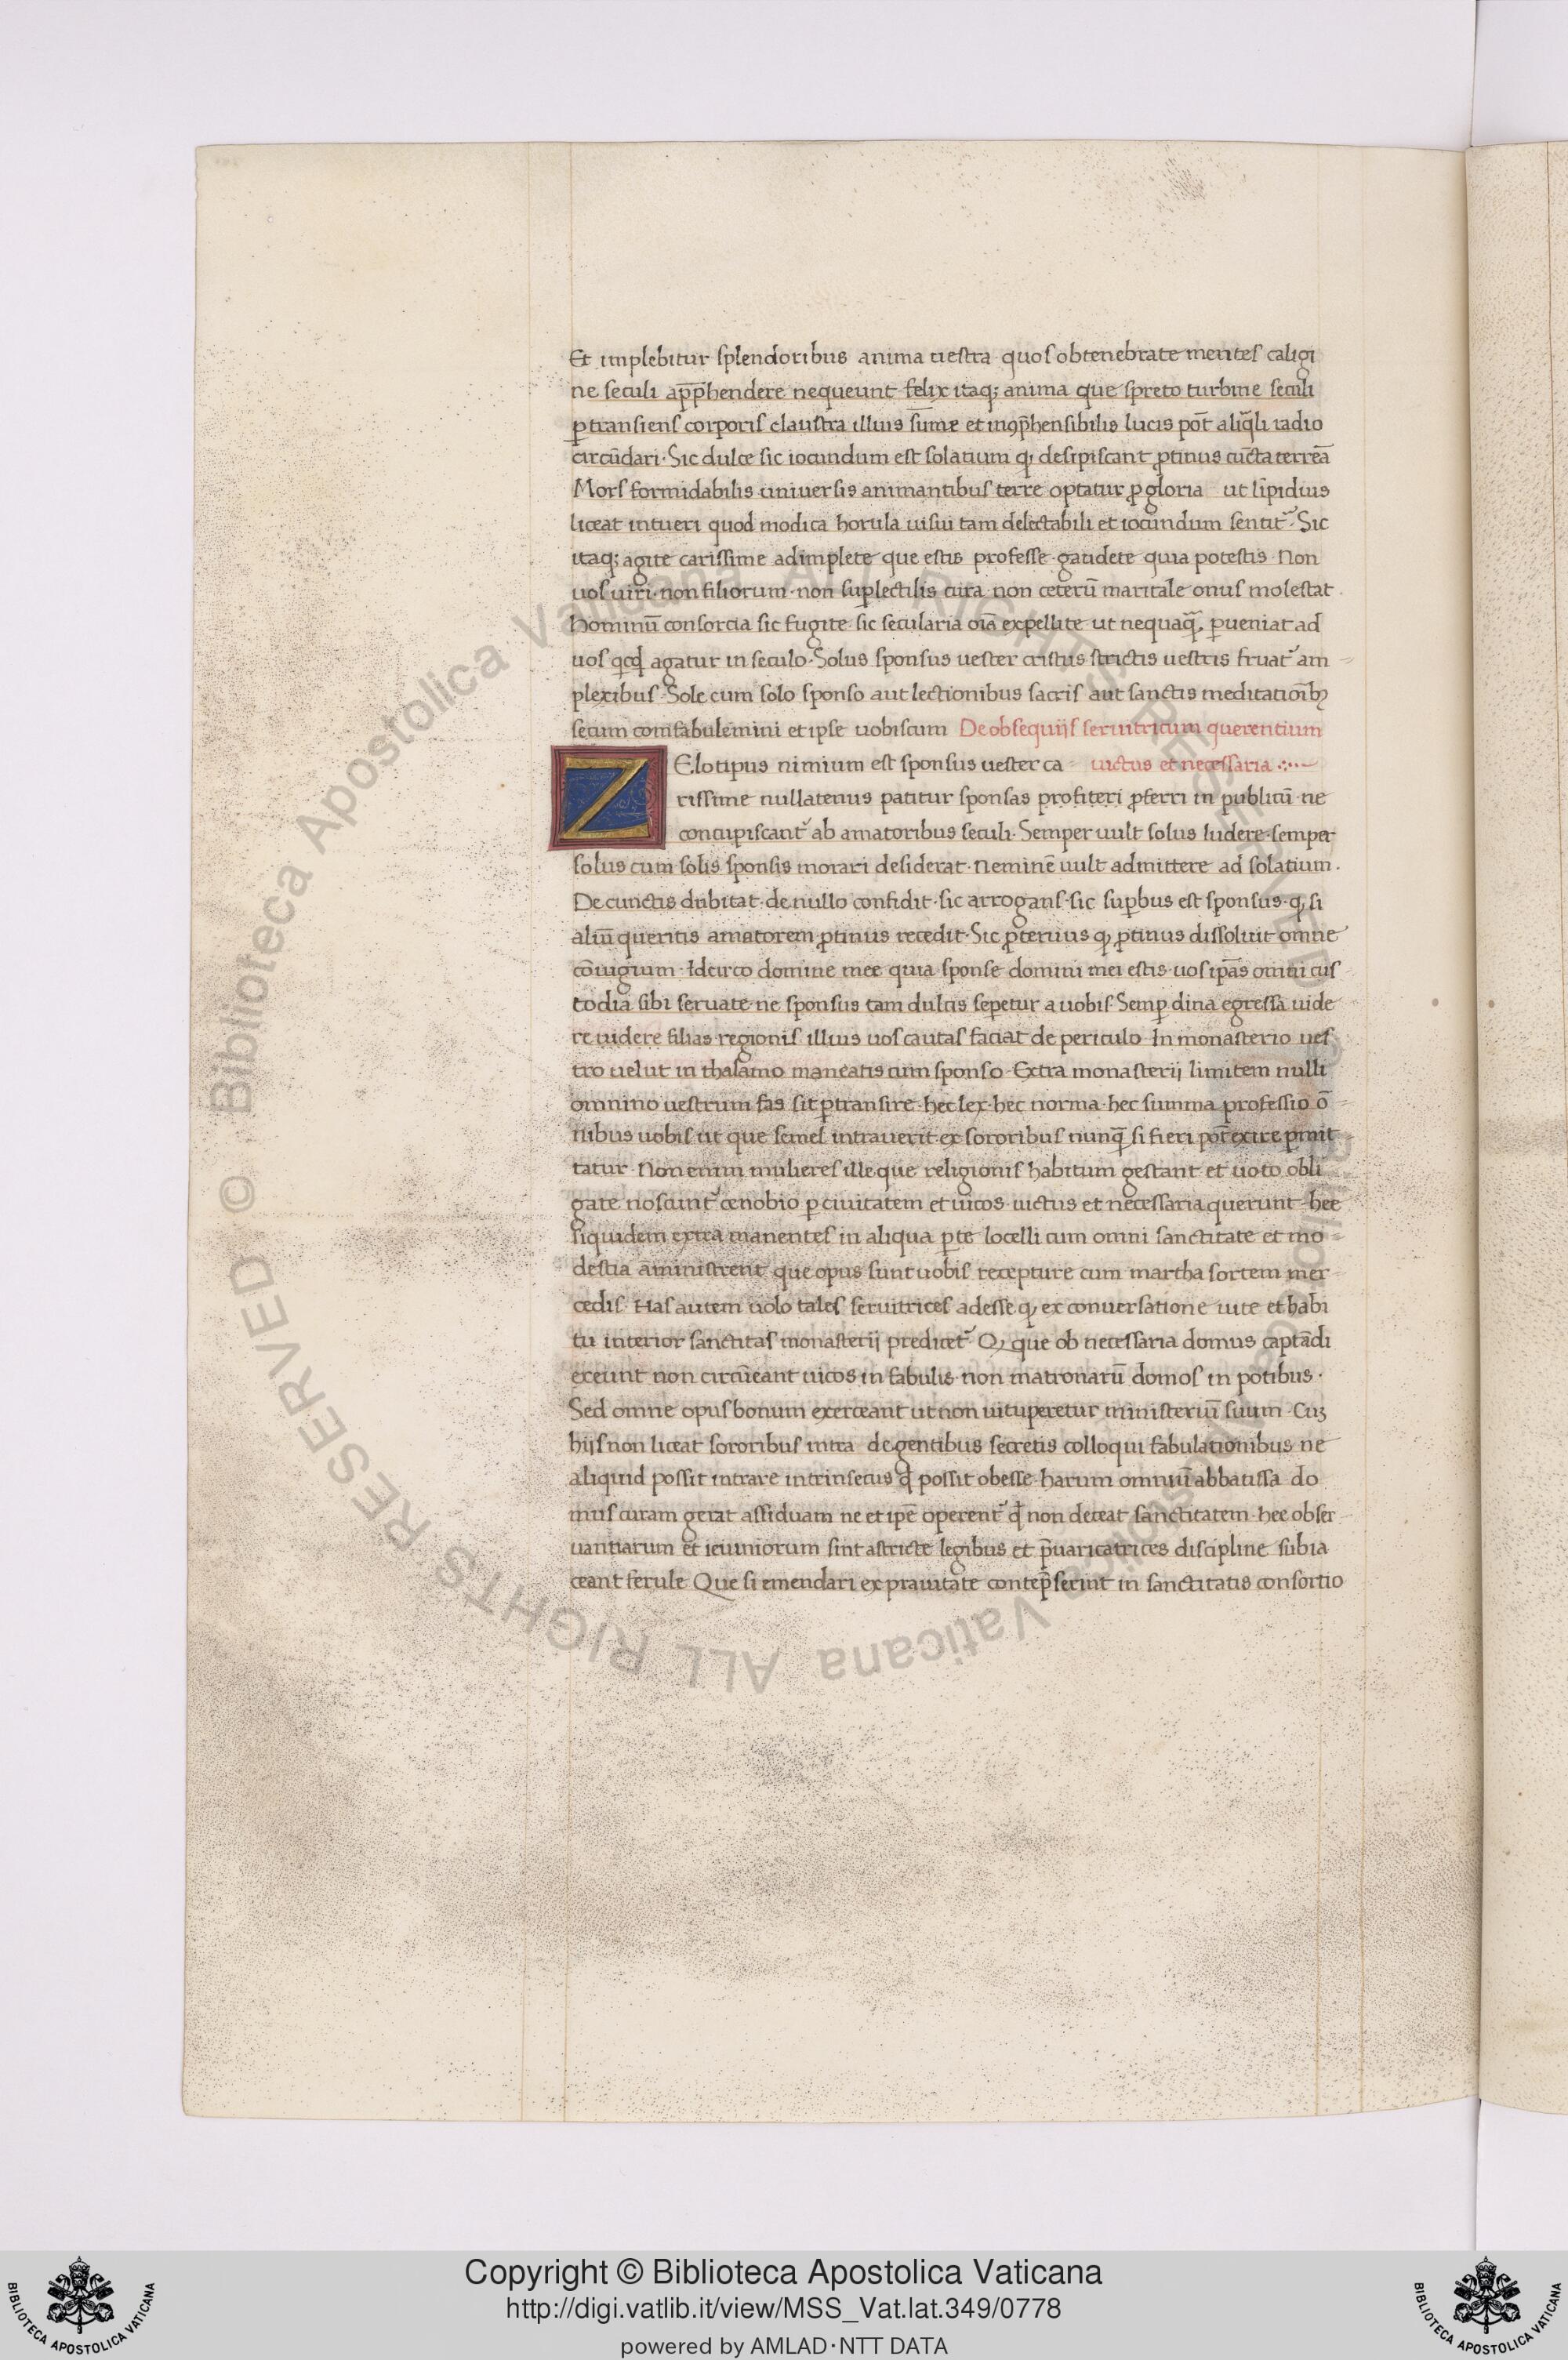 Et implebitur splendoribus anima uestra quos obtenebrate mentes caligi
ne seculi app̄hendere nequeunt felix itaqꝫ anima que spreto turbine seculi
ꝑtransiens corporis claustra illius sūme et inꝯp̄hensibilis lucis pōt aliq̄li radio
circūdari · Sic dulce sic iocundum est solatium qꝫ desipiscant ꝓtinus cūcta terrea
Mors formidabilis uniuersis animantibus terre optatur ꝓ gloria ut lipidius
liceat intueri quod modica horula uisui tam delectabili et iocundum sentit᷑ · Sic
itaqꝫ agite carissime adimplete que estis professe gaudete quia potestis Non
uos uiri · non filiorum · non suꝑlectilis cura non ceterū maritale onus molestat ·
Hominū consorcia sic fugite sic secularia oīa expellite ut nequaq̄ꝫ ꝑueniat ad
uos qͥcqd̄ agatur in seculo · Solus sponsus uester cristus strictis uestris fruat᷑ am
plexibus · Sole cum solo sponso aut lectionibus sacris aut sanctis meditatiōibꝫ
secum comfabulemini et ipse uobiscum De obsequijs seruitricum querentium
ZElotipus nimium est sponsus uester ca uictus et necessaria
rissime nullatenus patitur sponsas profiteri ꝓferri in publicū · ne
concupiscant᷑ ab amatoribus seculi · Semper uult solus ludere · semper
solus cum solis sponsis morari desiderat · neminē uult admittere ad solatium ·
De cunctis dubitat · de nullo confidit · sic arrogans · sic suꝑbus est sponsus · qꝫ si
aliū queritis amatorem ꝓtinus recedit · Sic ꝓteruus qꝫ ꝓtinus dissoluit omne
cōiugium · Idcirco domine mee quia sponse domini mei estis · uos ip̄as omni cus
todia sibi seruate ne sponsus tam dulcis sepetur a uobis · Semꝑ dina egressa uide
re uidere filias regionis illius uos cautas faciat de periculo · In monasterio ues
tro uelut in thalamo maneatis cum sponso · Extra monasterij limitem nulli
omnino uestrum fas sit ꝑtransire · hec lex · hec norma · hec summa professio ō
nibus uobis ut que semel intrauerit ex sororibus nunq̄ si fieri pōt exire ꝑmit
tatur · Non enim mulieres ille que religionis habitum gestant et uoto obli
gate noscunt᷑ cenobio ꝑ ciuitatem et uicos uictus et necessaria querunt hee
siquidem extra manentes in aliqua ꝑte locelli cum omni sanctitate et mo
destia aministrent que opus sunt uobis recepture cum martha sortem mer
cedis · Has autem uolo tales seruitrices adesse qꝫ ex conuersatione uite et habi
tu interior sanctitas monasterij predicet᷑ · Qꝫ que ob necessaria domus captādi
exeunt non circūeant uicos in fabulis non matronarū domos in potibus ·
Sed omne opus bonum exerceant ut non uituperetur ministeriū suum · Cuꝫ
hijs non liceat sororibus intra degentibus secretis colloqui fabulationibus ne
aliquid possit intrare intrinsecus qd̄ possit obesse · harum omniū abbatissa do
mus curam gerat assiduam ne et ipē operent᷑ qd̄ non deceat sanctitatem · hee obser
uantiarum et ieiuniorum sint astricte legibus et p̄uaricatrices discipline subia
ceant ferule Que si emendari ex prauitate contep̄serint in sanctitatis consortio
Copyright © Biblioteca Apostolica Vaticana
http://digi.vatlib.it/view/MSS_Vat.lat.349/0778
powered by AMLAD·NTT DATA
BIBLIOTECA APOSTOLICA VATICANA
BIBLIOTECA APOSTOLICA VATICANA
© Biblioteca Apostolica Vaticana ALL RIGHTS RESERVED
© Biblioteca Apostolica Vaticana ALL RIGHTS RESERVED